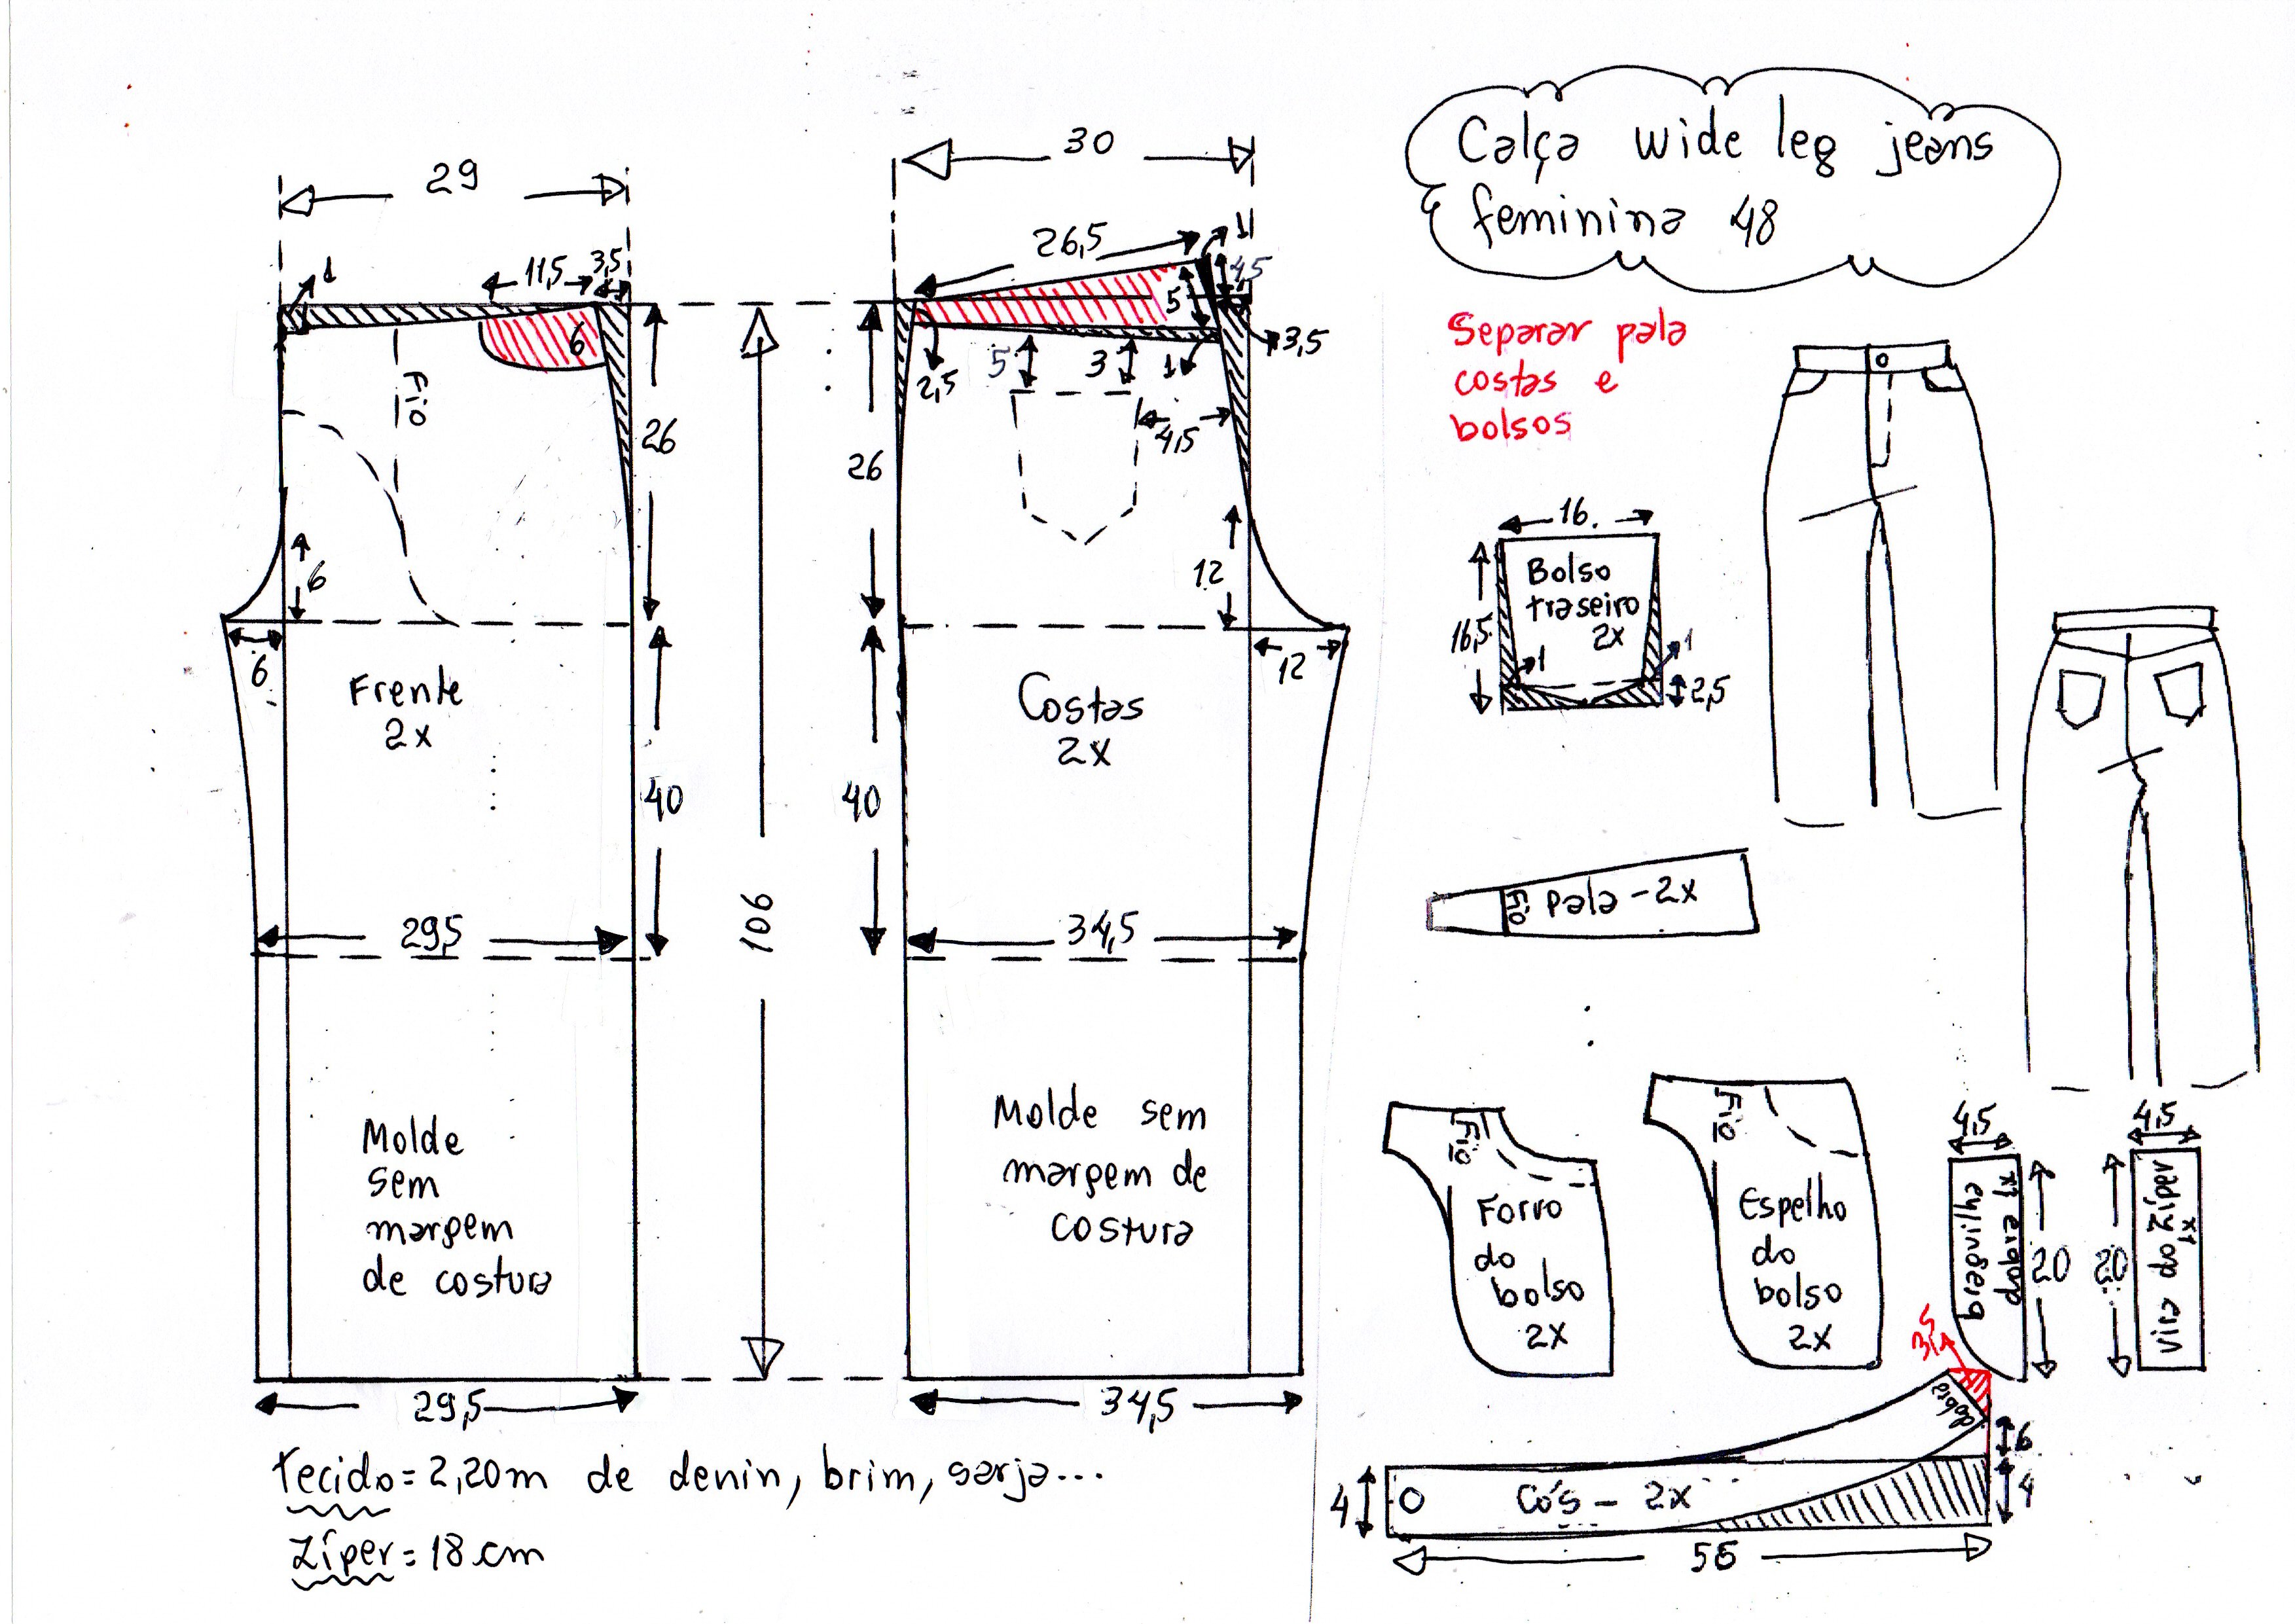 Calça wide leg jeans
feminina 48
Separar pala
costas e
bolsos
29
11,5
3,5
1
6
Fio
26
6
6
Frente
2x
40
29,5
Molde
sem
margem
de costura
29,5
106
30
26,5
1
4,5
5
3,5
2,5
5
3
1
4,5
26
12
12
Costas
2x
40
34,5
Molde sem
margem de
costura
34,5
tecido = 2,20m de denin, brim, sarja...
Zíper = 18 cm
16
16,5
Bolso
traseiro
2x
1
1
2,5
Fio
Pala - 2x
Fio
Forro
do
bolso
2x
Fio
Espelho
do
bolso
2x
4,5
braguilha
dobra 1x
20
4,5
20
vira do zíper
1x
dobra
6
4
4
Cós - 2x